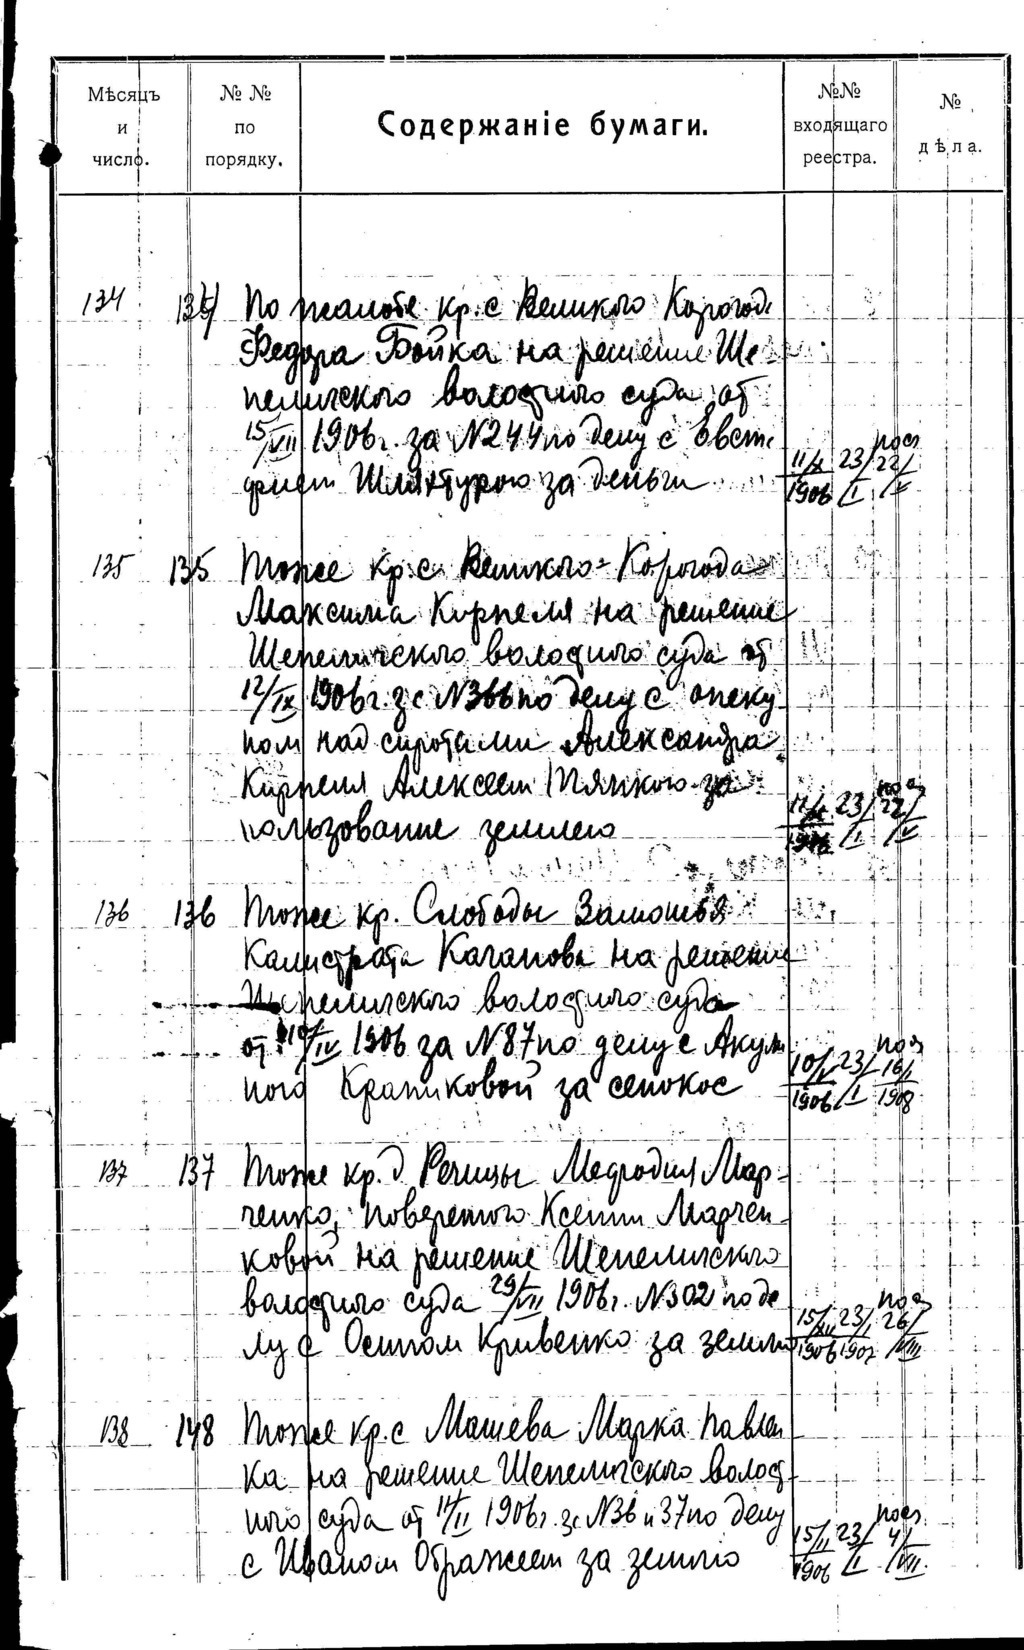 Мѣсяцъ и число.
№ № по порядку.
Содержаніе бумаги.
№№ входящаго реестра.
№ дѣла.
134 134 По жалобе кр. с Великого Корогод
Федора Бойка на решение Ше-
пеличского волостного суда от
15/VII 1906 г. за №244 по делу с Евст
фием Шляхтурою за деньги
11/X 1906 23/I 22/V
135 135 Тоже кр. с. Великого-Корогода
Максима Кирпеля на решение
Шепеличского волостного суда от
12/IX 1906 г. за №366 по делу с опеку
ном над сиротами Александра
Кирпеля Алексеем Тяпкого за
пользование землею
11/X 1906 23/I 22/V
136 136 Тоже кр. Слободы Замошья
Калистрата Каганова на решение
Шепеличского волостного суда
от 10/IV 1906 за №87 по делу с Акули
ного Крапиковой за сенокос
10/V 1906 23/I 16/I 1908
137 137 Тоже кр. д. Речицы Мефодия Мар-
ченко, поверенного Ксении Марчен-
ковой на решение Шепеличского
волостного суда 29/VII 1906 г. №302 по де
лу с Осипом Кривенко за землю
15/XII 1906 23/I 1907 26/VIII
138 148 Тоже кр. с Машева Марка Павлен
ка на решение Шепеличского волост
ного суда от 11/II 1906 г. за №36 и 37 по делу
с Иваном Ображеем за землю
15/II 1906 23/I 4/VII.